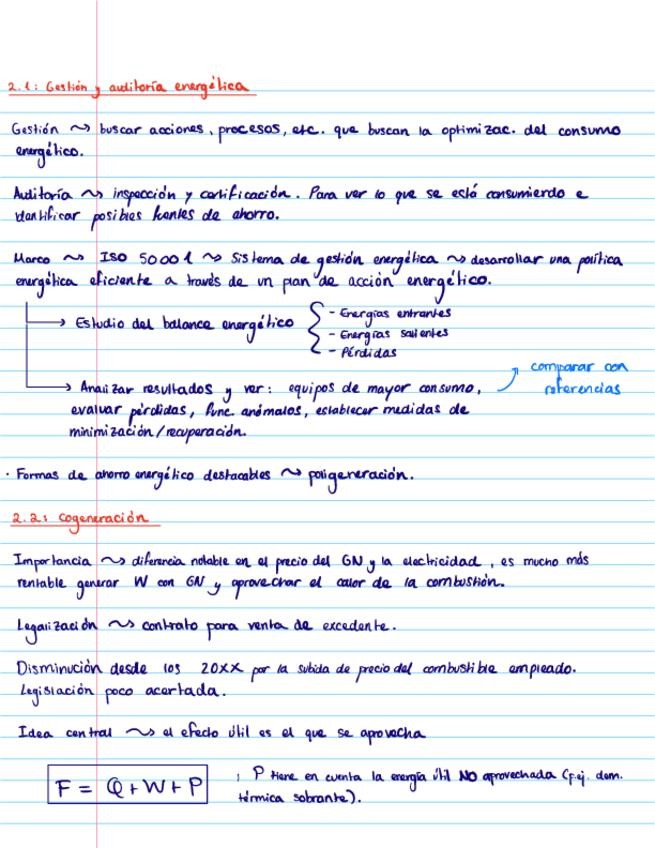 2.1: Gestión y auditoría energética
Gestión ~> buscar acciones, procesos, etc. que buscan la optimizac. del consumo
energético.
Auditoría ~> inspección y certificación. Para ver lo que se está consumiendo e
identificar posibles fuentes de ahorro.
Marco ~> ISO 50001 ~> Sistema de gestión energética ~> desarrollar una política
energética eficiente a través de un plan de acción energético.
→ Estudio del balance energético { - Energías entrantes
- Energías salientes
- Pérdidas
comparar con
referencias
→ Analizar resultados y ver: equipos de mayor consumo,
evaluar pérdidas, func. anómalos, establecer medidas de
minimización/recuperación.
· Formas de ahorro energético destacables ~> poligeneración.
2.2: Cogeneración
Importancia ~> diferencia notable en el precio del GN y la electricidad, es mucho más
rentable generar W con GN y aprovechar el calor de la combustión.
Legalización ~> contrato para venta de excedente.
Disminución desde los 20XX por la subida de precio del combustible empleado.
Legislación poco acertada.
Idea central ~> el efecto útil es el que se aprovecha
F = Q + W + P ; P tiene en cuenta la energía útil NO aprovechada (p.ej. dem.
térmica sobrante).